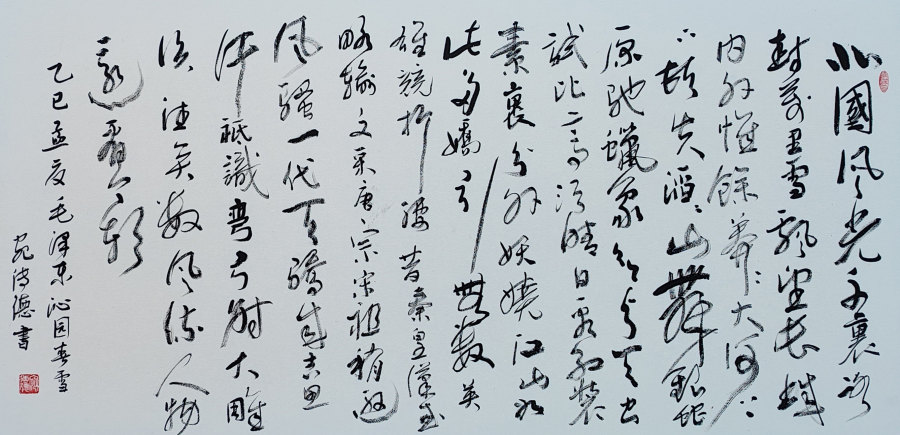 北國風光千裏冰
封萬里雪飄望長城
内外惟餘莽〻大河上
下頓失滔〻山舞銀蛇
原馳蠟象欲與天公
試比高須晴日看紅裝
素裏分外妖嬈江山如
此多嬌引無數英
雄競折腰昔秦皇漢武
略輸文采唐宗宋祖稍遜
風騷一代天驕成吉思
汗祗識彎弓射大雕
俱往矣數風流人物
還看今朝
乙巳孟夏毛泽东沁园春雪
書